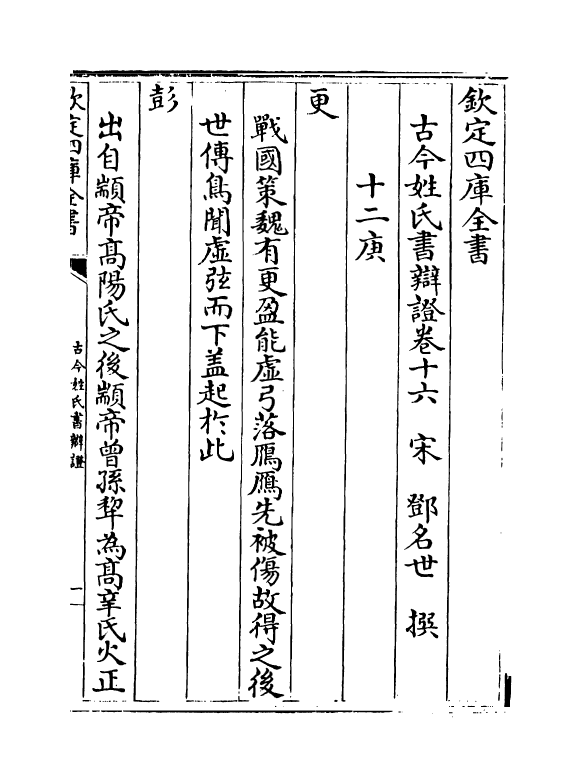 欽定四庫全書
古今姓氏書辯證卷十六　宋　鄧名世　撰
十二庚
更
戰國策魏有更盈能虛弓落鴈鴈先被傷故得之後
世傳鳥聞虛弦而下盖起於此
彭
出自顓帝高陽氏之後顓帝曾孫犂為高辛氏火正
欽定四庫全書
古今姓氏書辯證
一